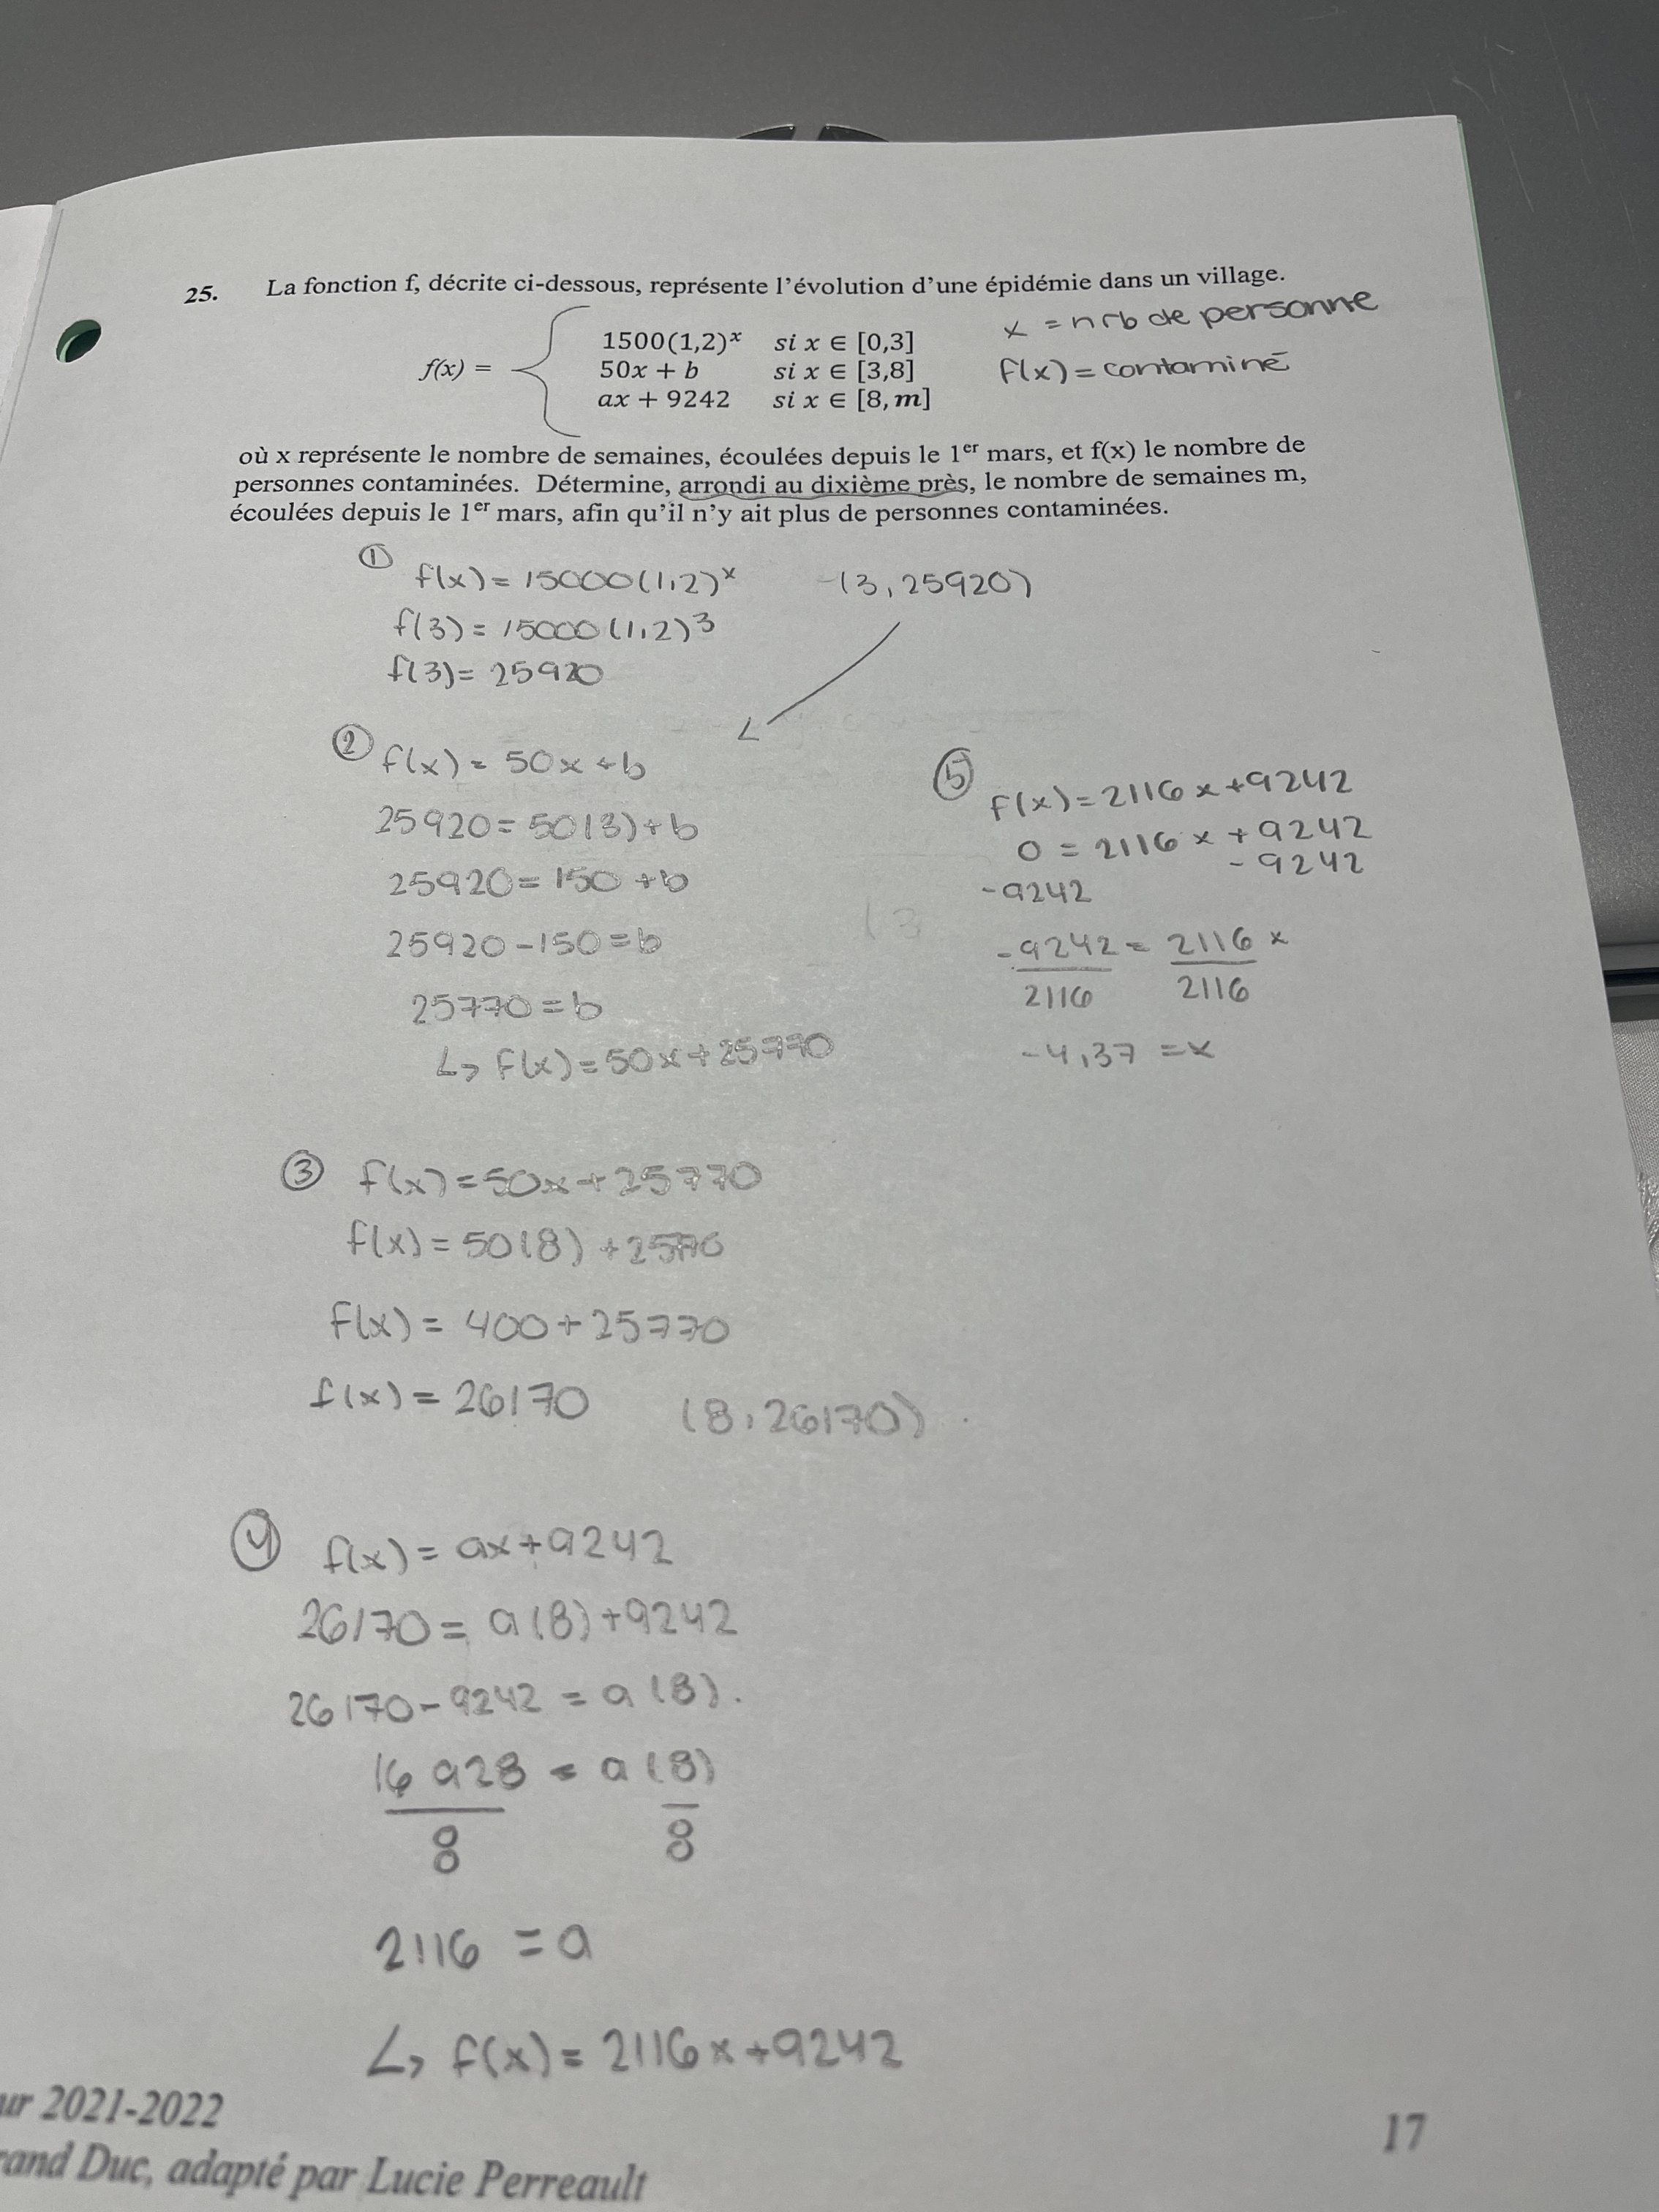 25. La fonction f, décrite ci-dessous, représente l'évolution d'une épidémie dans un village.
1500(1,2)ˣ si x ∈ [0,3]
f(x) = 50x + b si x ∈ [3,8]
ax + 9242 si x ∈ [8, m]
x = nrb de personne
f(x) = contaminé
où x représente le nombre de semaines, écoulées depuis le 1er mars, et f(x) le nombre de
personnes contaminées. Détermine, arrondi au dixième près, le nombre de semaines m,
écoulées depuis le 1er mars, afin qu'il n'y ait plus de personnes contaminées.
① f(x) = 15000(1,2)ˣ (3, 25920)
f(3) = 15000(1,2)³
f(3) = 25920
② f(x) = 50x + b
25920 = 50(3) + b
25920 = 150 + b
25920 - 150 = b
25770 = b
↳ f(x) = 50x + 25770
③ f(x) = 50x + 25770
f(x) = 50(8) + 25770
f(x) = 400 + 25770
f(x) = 26170 (8, 26170)
④ f(x) = ax + 9242
26170 = a(8) + 9242
26170 - 9242 = a(8)
16928 = a(8)
8 8
2116 = a
↳ f(x) = 2116x + 9242
⑤ f(x) = 2116x + 9242
0 = 2116x + 9242
-9242 - 9242
-9242 = 2116x
2116 2116
-4,37 = x
ur 2021-2022
rand Duc, adapté par Lucie Perreault
17